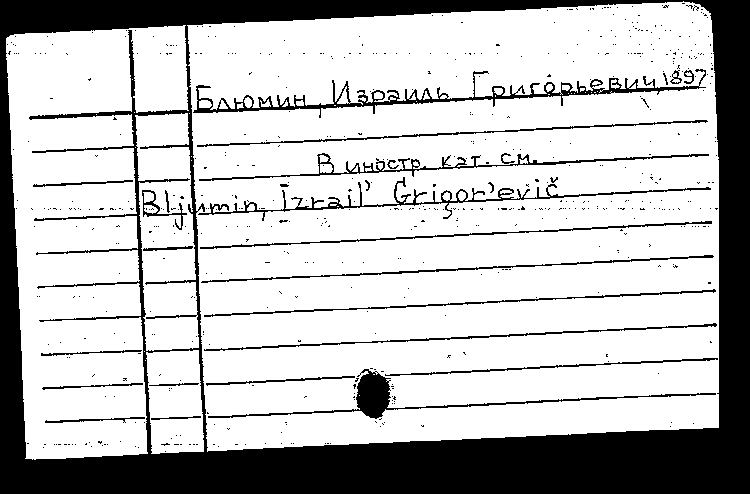 Блюмин, Израиль Григорьевич, 1897
В иностр. кат. см.
Bljumin, Izrail' Grigor'evič